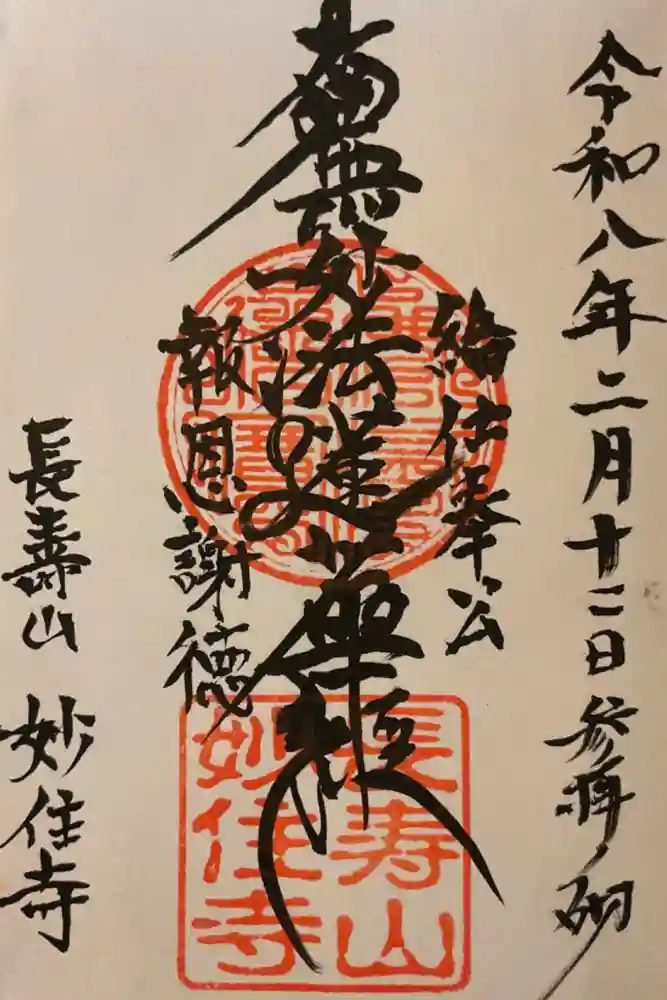 令和八年二月十二日参拝ノ砌
給仕奉公
南無妙法蓮華経
報恩謝徳
長壽山 妙住寺
長寿山
妙住寺